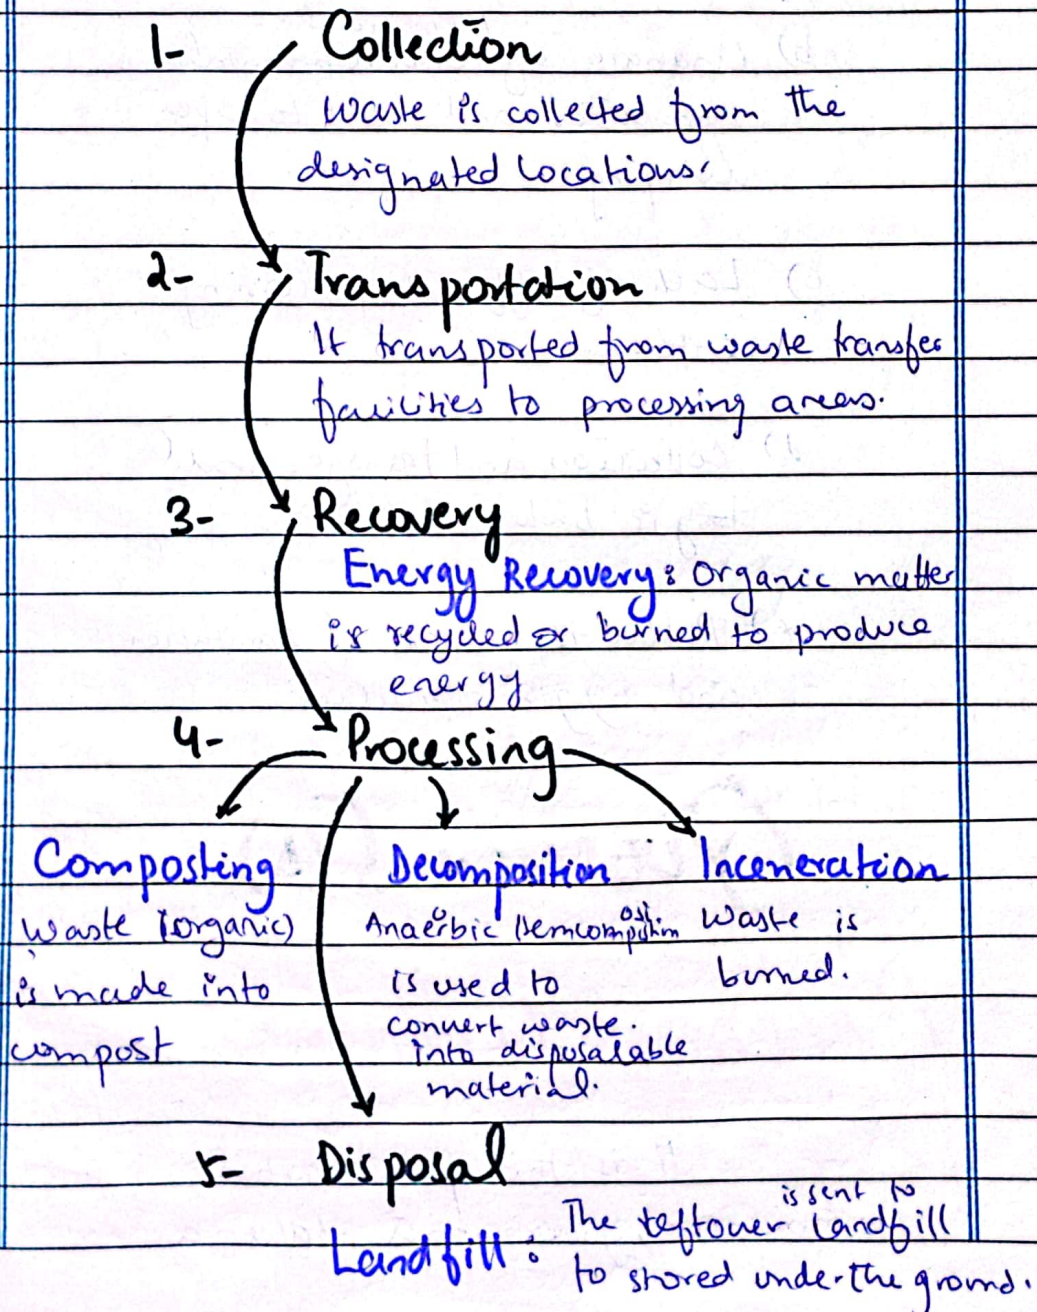 1- Collection
Waste is collected from the
designated locations.
2- Transportation
It transported from waste transfer
facilities to processing areas.
3- Recovery
Energy Recovery: Organic matter
is recycled or burned to produce
energy
4- Processing
Composting
Waste (organic)
is made into
compost
Decomposition
Anaerobic
is used to
convert waste
into disposalable
material.
Inceneration
Waste is
burned.
5- Disposal
Landfill: The leftover is sent to Landfill
to stored under the ground.